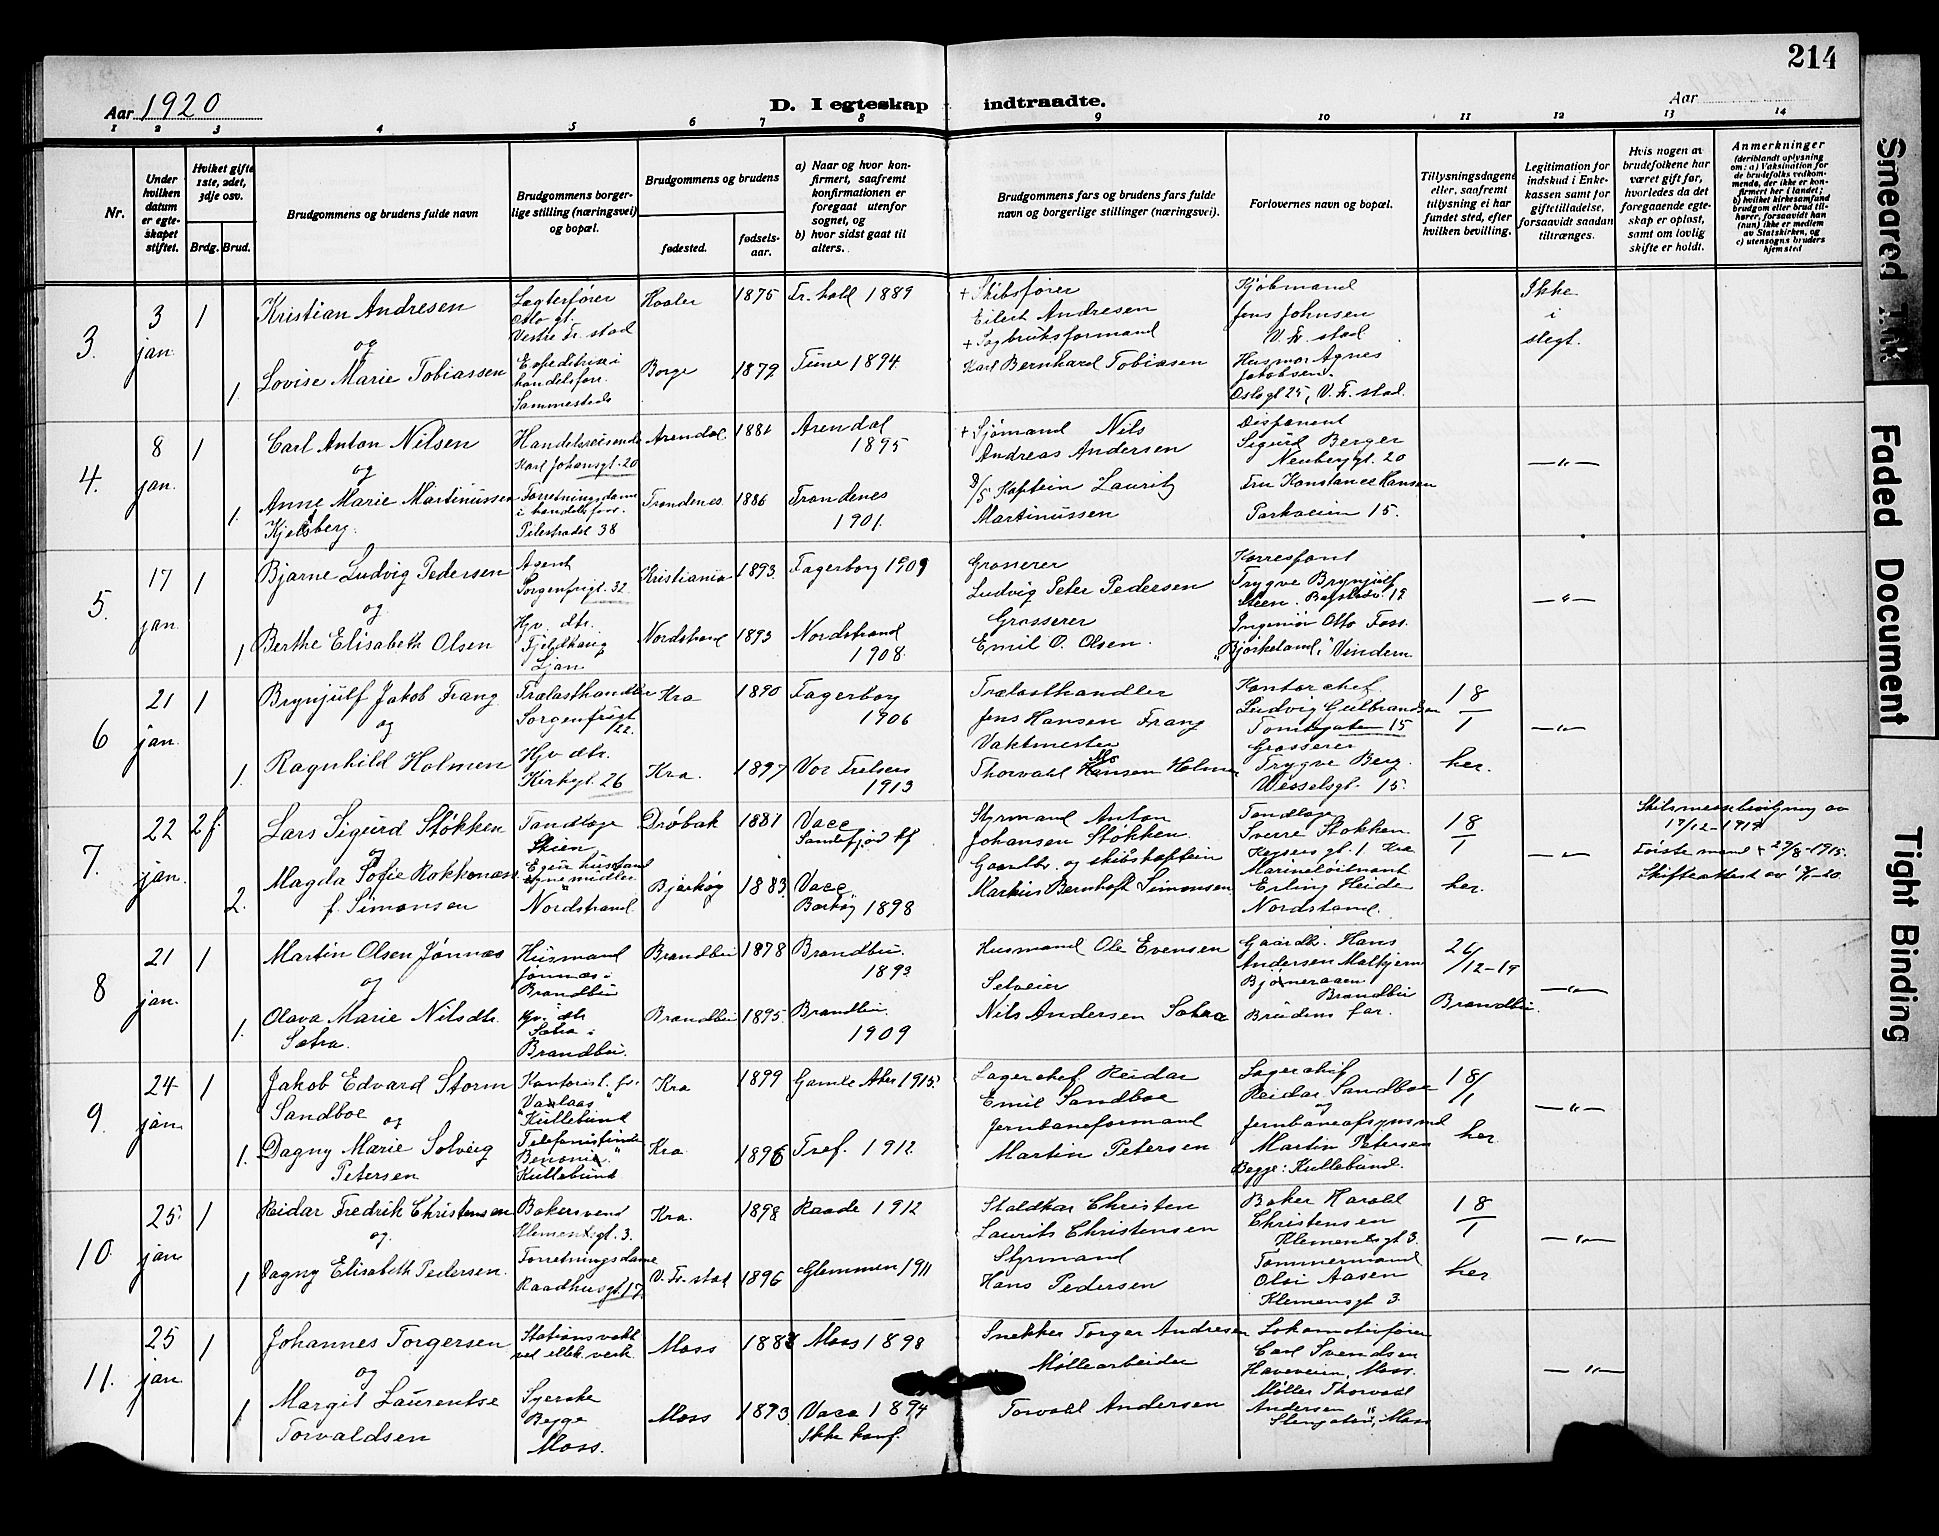 214
Aar 1920
D. I egteskap indtraadte.
Aar
1 2 3 4 5 6 7 8 9 10 11 12 13 14
Nr.
Under hvilken datum er egteskapet stiftet.
Hvilket gifte 1ste, 2det, 3dje osv.
Brdg. Brud.
Brudgommens og brudens fulde navn
Brudgommens borgerlige stilling (næringsvei) og bopæl.
Brudgommens og brudens
fødested.
fødselsaar.
a) Naar og hvor konfirmert, saafremt konfirmationen er foregaat utenfor sognet, og
b) hvor sidst gaat til alters.
Brudgommens fars og brudens fars fulde navn og borgerlige stillinger (næringsvei).
Forlovernes navn og bopæl.
Tillysningsdagene eller, saafremt tillysning ei har fundet sted, efter hvilken bevilling.
Legitimation for indskud i Enkekassen samt for giftetilladelse, forsaavidt saadan tiltrænges.
Hvis nogen av brudefolkene har været gift før, hvorledes da det foregaaende egteskap er opløst, samt om lovlig skifte er holdt.
Anmerkninger
(deriblandt oplysning om: a) Vaksination for de brudefolks vedkommende, der ikke er konfirmert her i landet; b) hvilket kirkesamfund brudgom eller brud tilhører, forsaavidt han (hun) ikke er medlem av Statskirken, og c) utensogns bruders hjemsted
3.
3 jan
1
Kristian Andresen
og
1.
Lovise Marie Tobiassen
Lagterfører
Oslo gt.
Vestre Fr. stad
Expeditrise i
handelsforr.
Sammesteds
Hvaler 1875 Fr. hald 1889
Borge 1879 Tune 1894
+ Skibsfører
Eilert Andresen
+ Sagbruksformand
Karl Bernhard Tobiasen
Kjøbmand
Jens Johnsen
V. Fr. stad
Husmor Agnes
Jakobsen.
Oslogt 25, V. Fr. stad.
Ikke
i
slegt.
4.
8 jan.
1
Carl Anton Nilsen
og
1.
Anne Marie Martinussen
Kjelsberg.
Handelsreisende
Karl Johansgt. 20
Forretningsdame
i handelsforr.
Pilestrædet 38
Arendal 1881 Arendal
1895
Trondenes 1886 Trondenes
1901.
+ Sjømand Nils
Andreas Andersen
D/S Kaptein Lauritz
Martinussen
Disponent
Sigurd Berger
Neuberggt. 20
Fru Konstance Hansen
Parkveien 15.
—"—
5.
17 jan.
1
Bjarne Ludvig Pedersen
og
1
Berthe Elisabeth Olsen
Agent
Sorgenfrigt. 32.
Hjv. dtr.
Fjeldhaug
Ljan
Kristiania 1893. Fagerborg 1909
Nordstrand 1893 Nordstrand
1908.
Grosserer
Ludvig Peter Pedersen
Grosserer
Emil O. Olsen.
Trygve Brynjulf
Steen. Bogstadv. 19
Ingeniør Otto Foss.
"Bjørkeland," Vindern
—"—
6
21 jan.
1
Brynjulf Jakob Frang
og
1.
Ragnhild Holmen
Trælasthandler
Sorgenfrigt
22.
Hjv dtr.
Kirkegt. 26
Kra 1890 Fagerborg
1906
Kra. 1897 Vor Frelsers
1913
Trælasthandler
Jens Hansen Frang
Vaktmester
Thorvald Hansen Holmen
Kontorchef
Ludvig Gulbrandsen
Tomtegaten 15
Grosserer
Trygve Berg.
Wesselsgt. 15.
18/1
her.
—"—
7.
22 jan.
2 f.
Lars Sigurd Støkken
og
2.
Magda Sofie Rokkones
f. Simonsen
Tandlæge
Skien
Nordstrand
Drøbak 1881 Vace
Sandefjord kf
Bjarkøy 1883. Vace
Barkøy 1898
Styrmand Anton
Johansen Støkken.
Gaardbr. og skibskaptein
Markus Bernhoft Simonsen
Tandlæge
Sverre Støkken
Keysers gt. 1 Kra
Marineløitnant
Erling Heide
Nordstand.
18/1
her.
—"—
Skilsmessebevilgning av
17/12-1919
Første mand + 27/8-1915.
8
21 jan.
1
Martin Olsen Jønnæs
og
1.
Olava Marie Nilsdtr.
Sætra.
Husmand
Jønnæs i
Brandbu
Hjv. dtr
Sætra i
Brandbu.
Brandbu 1878 Brandbu.
1893
Brandbu 1895. Brandbu.
1909
Husmand Ole Evensen
Selveier
Nils Andersen Sætra
Gaardbr. Hans
Andersen Molkjern
Brandbu
Brudens far.
26/12-19
Brandbu.
—"—
9.
24 jan.
1
Jakob Edvard Storm
Sandboe og
1.
Dagny Marie Solveig
Petersen
Kullebund
Kullebund
Kra 1899 Gamle Aker 1915.
Kra. 1896 Tref. 1912
Lagerchef Reidar
Emil Sandboe
Jernbaneformand
Martin Petersen
Lagerchef
Reidar Sandboe
og
Martin Petersen
Begge: Kullebund.
18/1
her
—"—
10
25 jan
1
Reidar Fredrik Christensen
og.
1
Dagny Elisabeth Pedersen.
Bakersvend
Klementsgt. 3.
Forretningsdame
Raadhusgt. 17.
Kra. 1898 Raade 1912
V. Fr. stad 1896 Glemmen 1911
Staldkar Christen
Laurits Christensen
Styrmand
Hans Pedersen
Baker Harald
Christensen
Klementsgt 3.
Tømmermand
Olai Aasen
Klemensgt 3.
18/1
her
—"—
11.
25 jan.
1
Johannes Torgersen
og
1
Margit Laurentse
Torvaldsen
Stationsvakt
ved elektr. verk.
Syerske
Begge
Moss.
Moss 1883 Moss 1898
Moss 1893 Vace 1894
Ikke konf.
Snekker Torger Andresen
Møllearbeider
Torvald Andersen
Lokomotivfører
Carl Svendsen
Haveveien, Moss.
Møller Thorvald
Andersen
Stengaten, Moss
—"—
Smeared Ink
Faded Document
Tight Binding